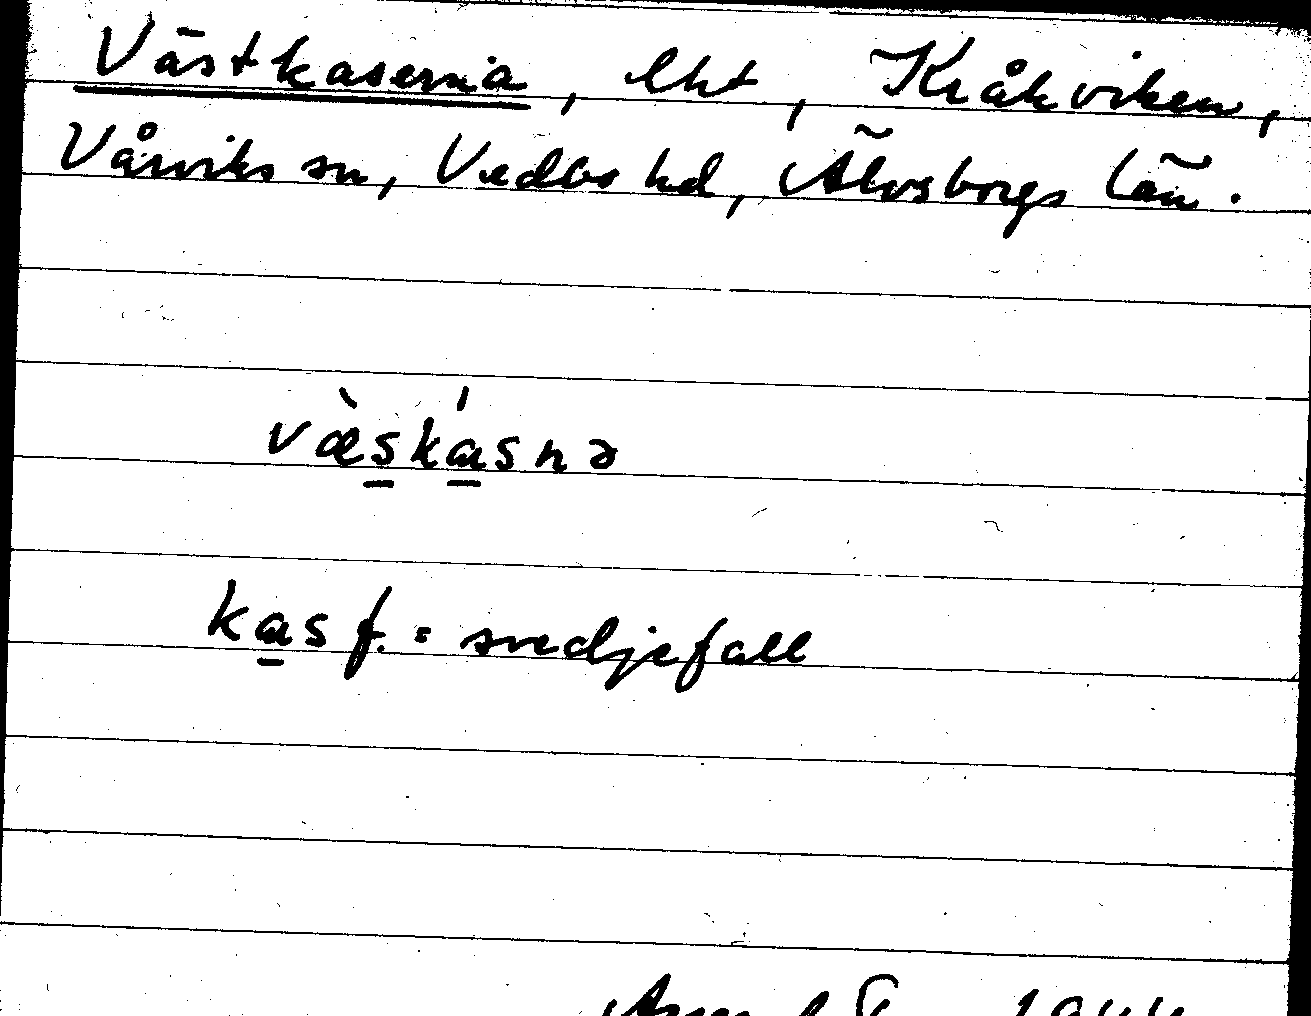 Västkaserna, lht, Kråkviken,
Vårviks sn, Vedbo hd, Älvsborgs län.
væ̀skásnə
kas f. = svedjefall